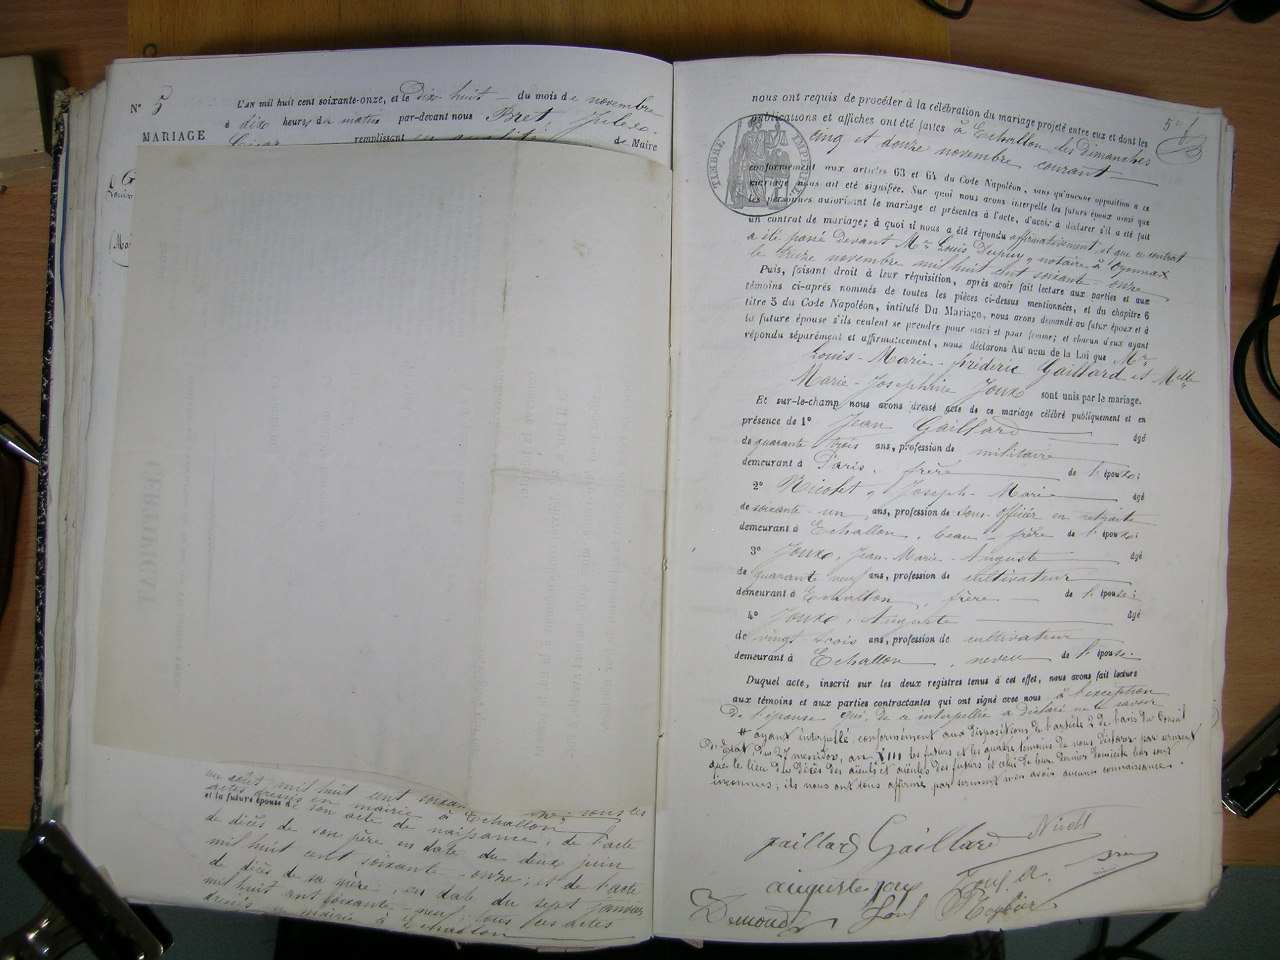 N° 5
L'AN mil huit cent soixante-onze, et le dix huit du mois de novembre
à dix heures du matin par-devant nous Bret Jules
MARIAGE
remplissant de Maire
un août mil huit cent soixante
actes dressés en mairie à Echallon
et la future épouse de son acte de naissance, de l'acte
de décès de son père en date du deux juin
mil huit cent soixante-onze; et de l'acte
de décès de sa mère, en date du sept janvier
mil huit cent soixante-neuf; tous ces actes
dressés en mairie à Echallon
nous ont requis de procéder à la célébration du mariage projeté entre eux et dont les
publications et affiches ont été faites à Echallon les dimanches
cinq et douze novembre courant
TIMBRE IMPERIAL
conformément aux articles 63 et 64 du Code Napoléon, sans qu'aucune opposition à ce
mariage nous ait été signifiée. Sur quoi nous avons interpellé les futurs époux ainsi que
les personnes autorisant le mariage et présentes à l'acte, d'avoir à déclarer s'il a été fait
un contrat de mariage; à quoi il nous a été répondu affirmativement et que ce contrat
a été passé devant Mr Louis Dupuy, notaire à Oyonnax
le treize novembre mil huit cent soixante-onze
Puis, faisant droit à leur réquisition, après avoir fait lecture aux parties et aux
témoins ci-après nommés de toutes les pièces ci-dessus mentionnées, et du chapitre 6
titre 5 du Code Napoléon, intitulé Du Mariage, nous avons demandé au futur époux et à
la future épouse s'ils veulent se prendre pour mari et pour femme; et chacun d'eux ayant
répondu séparément et affirmativement, nous déclarons Au nom de la Loi que Mr
Louis-Marie-Fréderic Gaillard et Melle
Marie-Josephine Joux sont unis par le mariage.
Et sur-le-champ nous avons dressé acte de ce mariage célébré publiquement et en
présence de 1° Jean Gaillard âgé
de quarante trois ans, profession de militaire
demeurant à Paris, frère de l'époux;
2° Nicolet, Joseph-Marie âgé
de soixante-un ans, profession de sous-officier en retraite
demeurant à Echallon, beau-frère de l'époux;
3° Joux, Jean-Marie-Auguste âgé
de quarante neuf ans, profession de cultivateur
demeurant à Echallon, frère de l'épouse;
4° Joux, Auguste âgé
de vingt trois ans, profession de cultivateur
demeurant à Echallon, neveu de l'épouse.
Duquel acte, inscrit sur les deux registres tenus à cet effet, nous avons fait lecture
aux témoins et aux parties contractantes qui ont signé avec nous à l'exception
de l'épouse qui, de ce interpellée a déclaré ne le savoir
ayant interpellé, conformément aux dispositions de l'article 2 de l'avis du Conseil
d'Etat du 27 messidor, an XIII les futurs et les quatre témoins de nous déclarer par serment
que le lieu du décès des aïeuls et aïeules des futurs et celui de leur dernier domicile leur sont
inconnus, ils nous ont tous affirmé par serment n'en avoir aucune connaissance.
gaillard Gaillard
auguste joux Joux A.